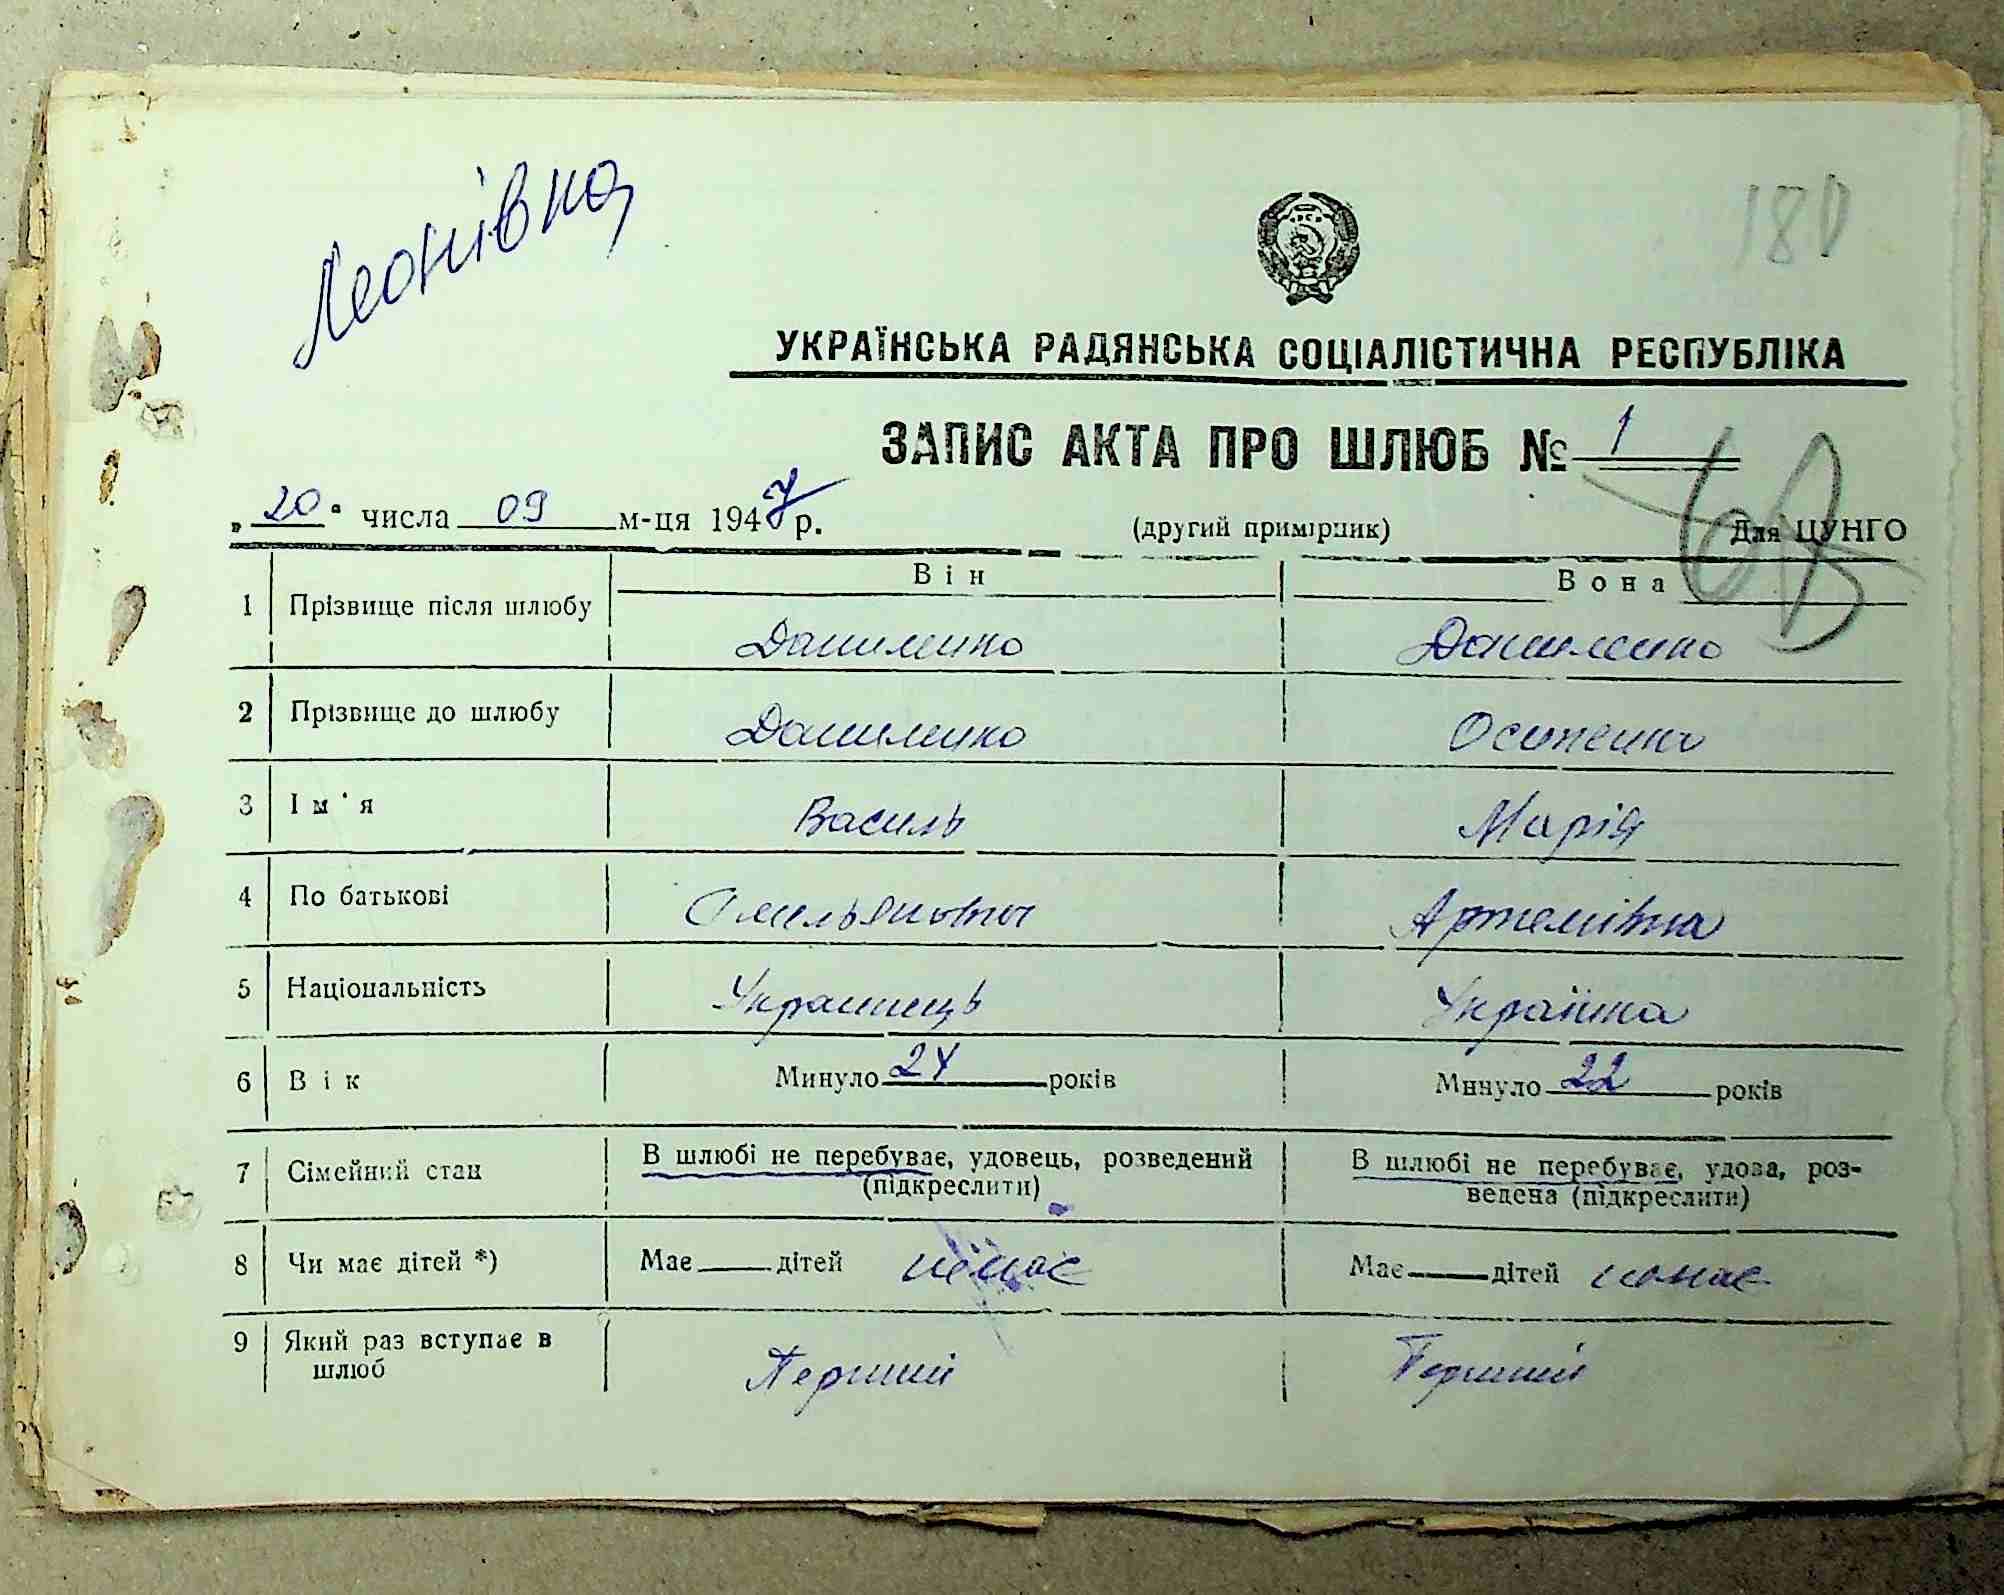 Леонівка
180
УКРАЇНСЬКА РАДЯНСЬКА СОЦІАЛІСТИЧНА РЕСПУБЛІКА
ЗАПИС АКТА ПРО ШЛЮБ № 1
„ 20 “ числа 09 м-ця 1947 р. (другий примірник) Для ЦУНГО
Він Вона
1 Прізвище після шлюбу Даниленко Даниленко
2 Прізвище до шлюбу Даниленко Осипенко
3 Ім'я Василь Марія
4 По батькові Омельянович Артемівна
5 Національність Українець Українка
6 Вік Минуло 24 років Минуло 22 років
7 Сімейний стан В шлюбі не перебуває, удовець, розведений (підкреслити) В шлюбі не перебуває, удова, роз-
ведена (підкреслити)
8 Чи має дітей *) Має — дітей немає Має — дітей немає
9 Який раз вступає в
шлюб Перший Перший